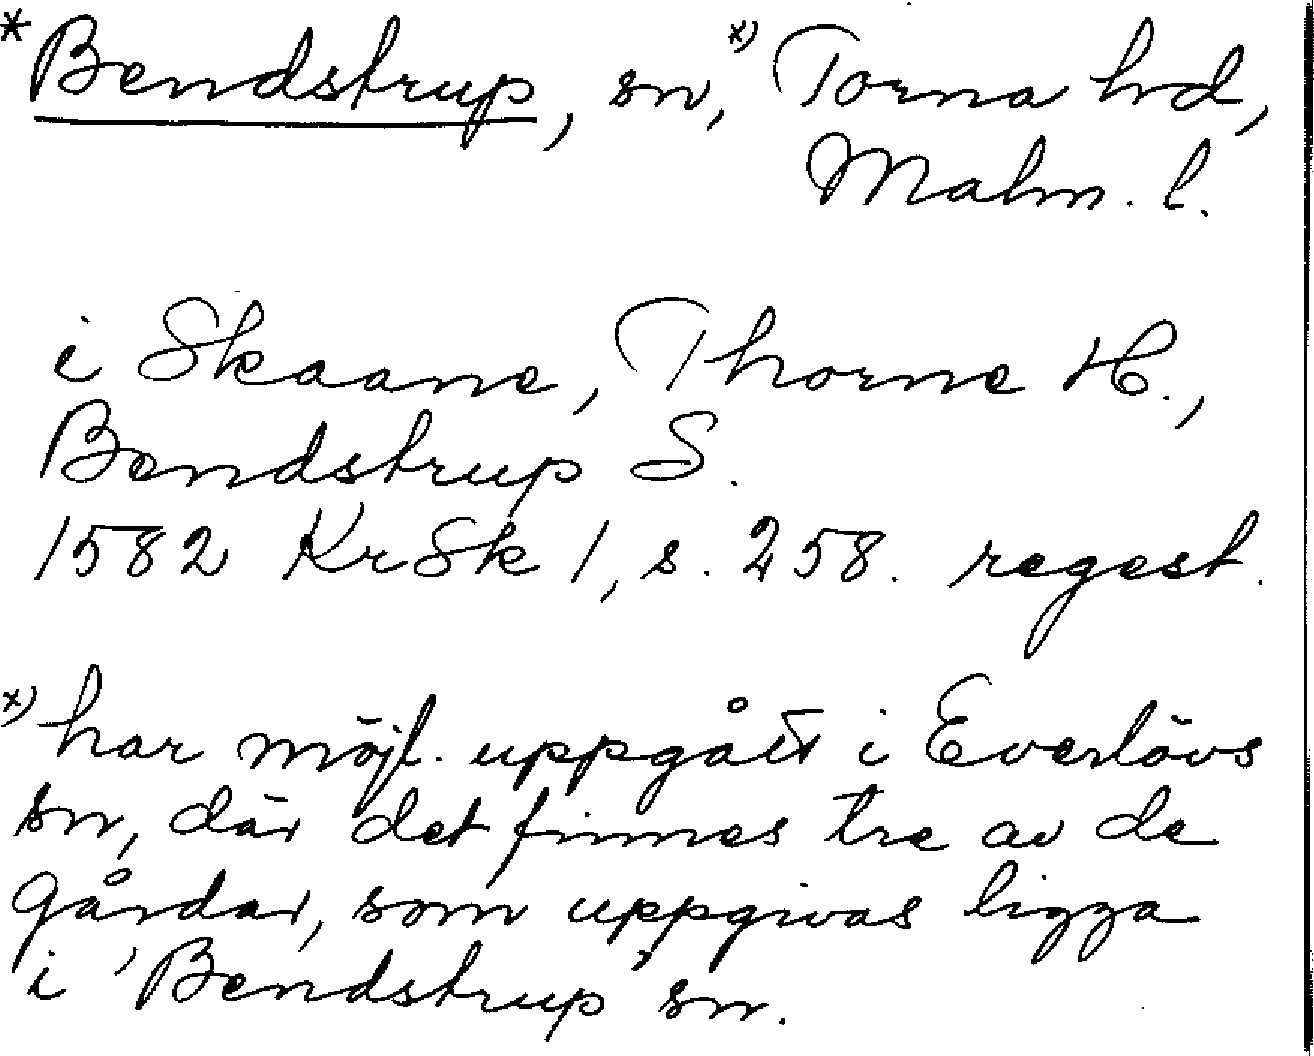 *Bendstrup, sn,ˣ⁾ Torna hd,
Malm. l.
i Skaane, Thorne H.,
Bendstrup S.
1582 KrSk 1, s. 258. regest.
ˣ⁾ har möjl. uppgått i Everlövs
sn, där det finnes tre av de
gårdar, som uppgivas ligga
i 'Bendstrup' sn.